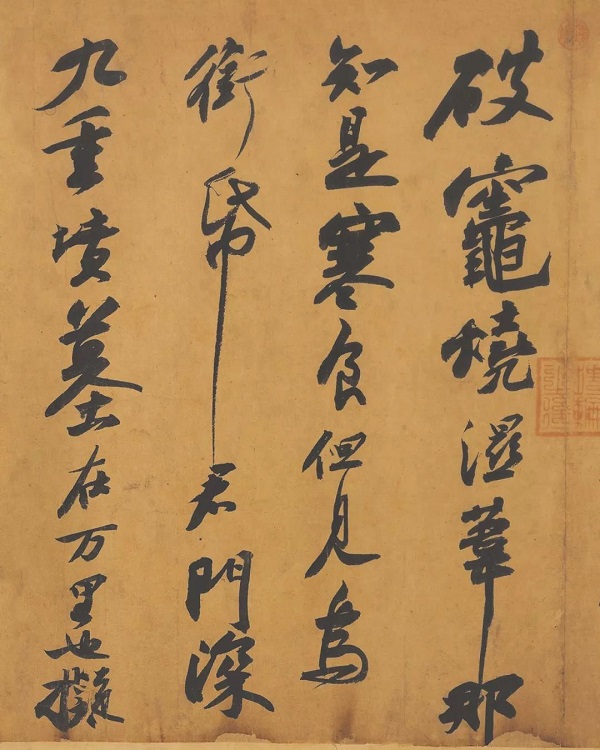 破竈燒濕葦那
知是寒食但見烏
銜帋君門深
九重墳墓在万里也擬